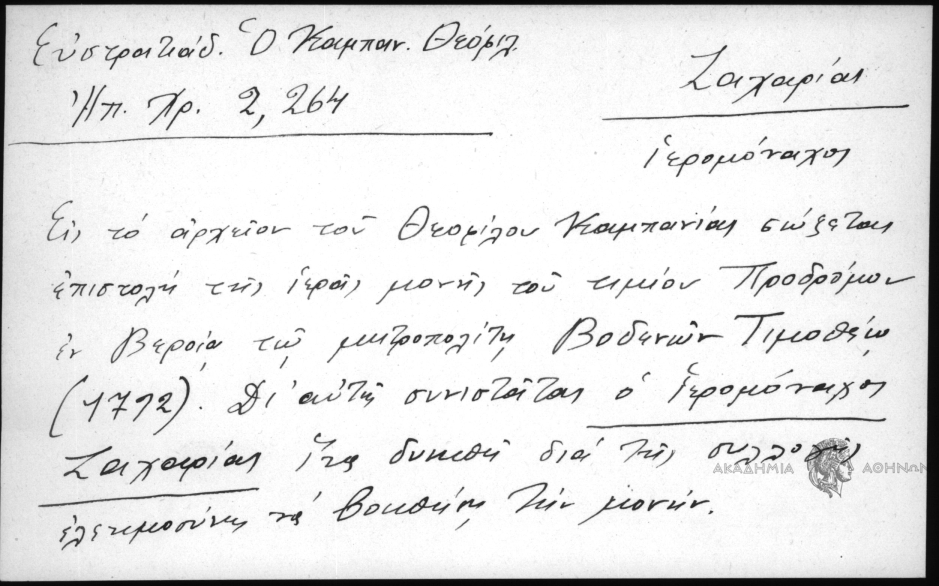 Εὐστρατιάδ. Ὁ Καμπαν. Θεόφιλ.
Ἠπ. Χρ. 2, 264
Ζαχαρίας
ἱερομόναχος
Εἰς τό ἀρχεῖον τοῦ Θεοφίλου Καμπανίας σώζεται
ἐπιστολή τῆς ἱερᾶς μονῆς τοῦ τιμίου Προδρόμου
ἐν Βεροίᾳ τῷ μητροπολίτῃ Βοδενῶν Τιμοθέῳ
(1792). Δι' αὐτῆς συνιστᾶται ὁ ἱερομόναχος
Ζαχαρίας ἵνα δυνηθῇ διά τῆς συλλογῆς
ἐλεημοσύνης νά βοηθήσῃ τήν μονήν.
ΑΚΑΔΗΜΙΑ ΑΘΗΝΩΝ